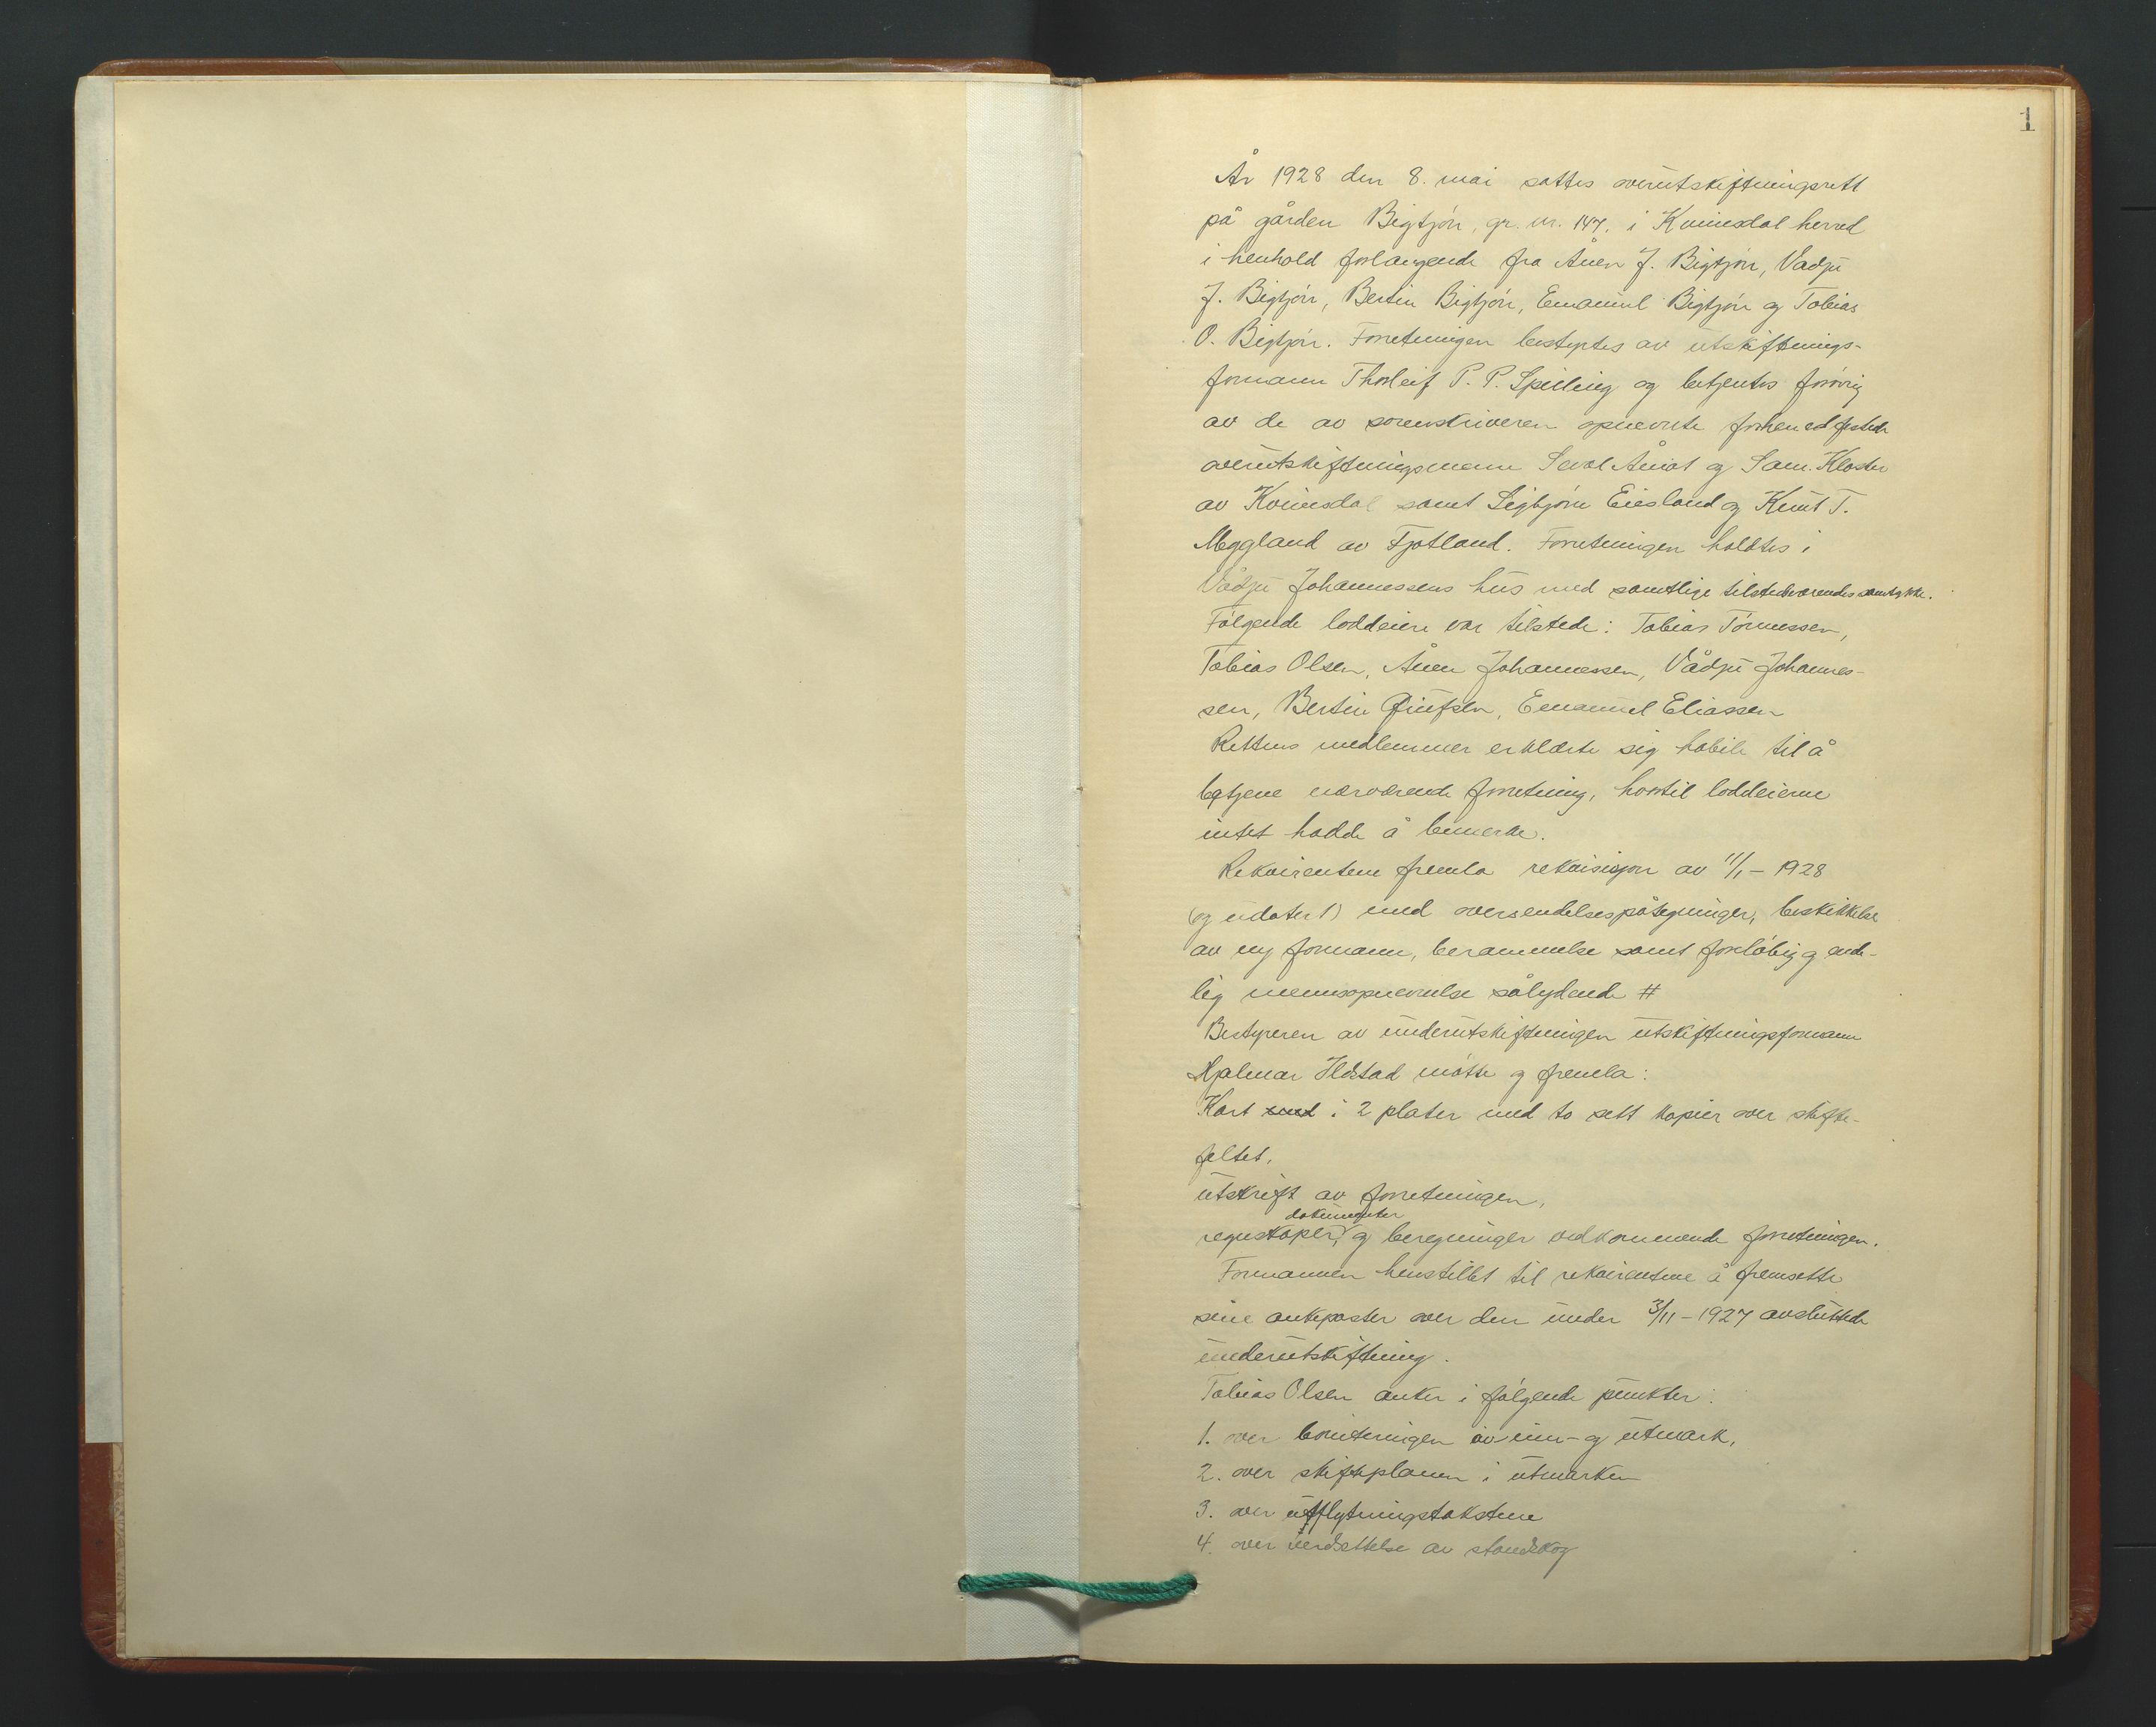 1
År 1928 den 8. mai sattes overutskiftningsrett
på gården Bigtjön, gr. nr. 147. i Kvinesdal herred
i henhold forlangende fra Ånen J. Bigtjön, Vadju
J. Bigtjön, Bertin Bigtjön, Emanuel Bigtjön og Tobias
O. Bigtjön. Forretningen bestyrtes av utskiftnings-
formann Thorleif P. P. Speiling og betjentes forövrig
av de av sorenskriveren opnevnte forhen edfestede
overutskiftningsmenn Seval Åmot og Sam. Kloster
av Kvinesdal samt Sigbjörn Eiesland og Knut T.
Meggland av Fjotland. Forretningen holdtes i
Vådju Johannessens hus med samtlige tilstedeværendes samtykke.
Fölgende loddeiere var tilstede: Tobias Tönnessen,
Tobias Olsen, Ånen Johannessen, Vådju Johannes-
sen, Bertin Emanuel Eliassen
Rettens medlemmer erklærte sig habile til å
betjene nærværende forretning, hvortil loddeierne
intet hadde å bemerke.
Rekvirentene fremla rekvisisjon av 11/1 - 1928
(og udatert) med oversendelsespåtegninger, beskikkelse
av ny formann, berammelse samt foreløbig og ende-
lig mennsopnevnelse sålydende #
Bestyreren av underutskiftningen utskiftningsformann
Hjalmar Ilestad mötte og fremla:
Kart med i 2 plater med to sett kopier over skifte-
feltet,
utskrift av forretningen,
dokumenter
regnskaper, og beregninger vedkommende forretningen.
Formannen henstillet til rekvirentene å fremsette
sine ankeposter over den under 3/11 - 1927 avsluttede
underutskiftning.
Tobias Olsen anker i fölgende punkter:
1. over boniteringen av inn- og utmark,
2. over skifteplanen i utmarken
3. over utflytningstakstene
4. over verdsettelse av standskog